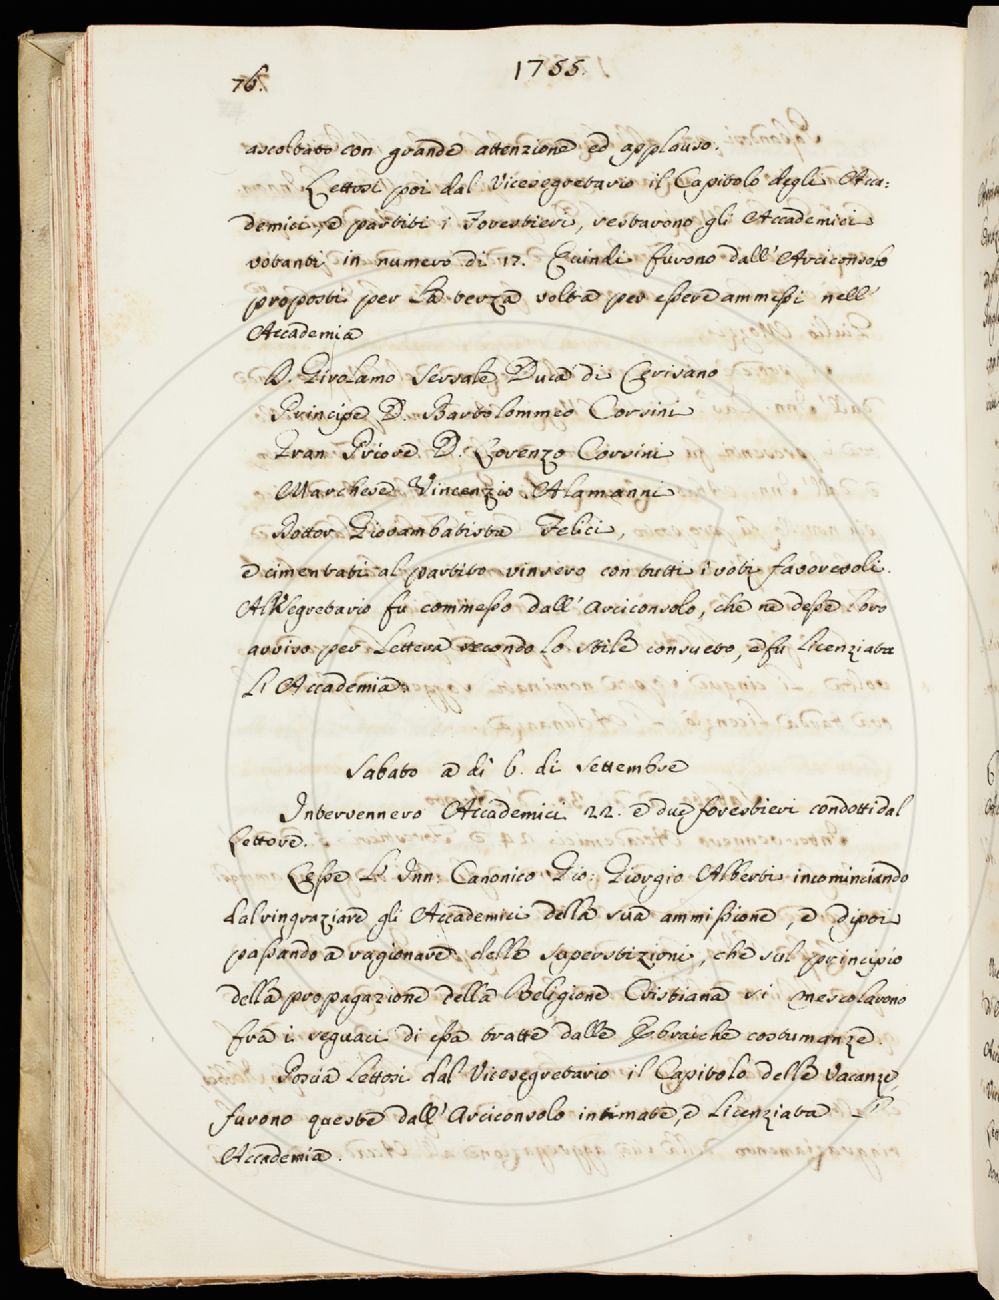 76.
1755.
ascoltato con grande attenzione ed applauso.
Lettosi poi dal Vicesegretario il Capitolo degli Acca=
demici, e partiti i Forestieri, restarono gli Accademici
votanti in numero di 17. Quindi furono dall' Arciconsolo
proposti per la terza volta per essere ammessi nell'
Accademia
D. Girolamo Sersale Duca di Cerisano
Principe D. Bartolommeo Corsini
Gran Priore D. Lorenzo Corsini
Marchese Vincenzio Alamanni
Dottor Giovambatista Felici,
e cimentati al partito vinsero con tutti i voti favorevoli.
Al Segretario fu commesso dall' Arciconsolo, che ne desse loro
avviso per Lettera secondo lo stile consueto, e fu licenziata
L' Accademia.
Sabato a dì 6. di Settembre
Intervennero Accademici 22. e due forestieri condotti dal
Lettore.
Lesse L' Inn: Canonico Gio: Giorgio Alberti incominciando
dal ringraziare gli Accademici della sua ammissione, e dipoi
passando a ragionare delle superstizioni, che sul principio
della propagazione della Religione Cristiana si mescolarono
fra i seguaci di essa tratte dalle Ebraiche costumanze.
Poscia lettosi dal Vicesegretario il Capitolo delle Vacanze,
furono queste dall' Arciconsolo intimate, e licenziata L'
Accademia.